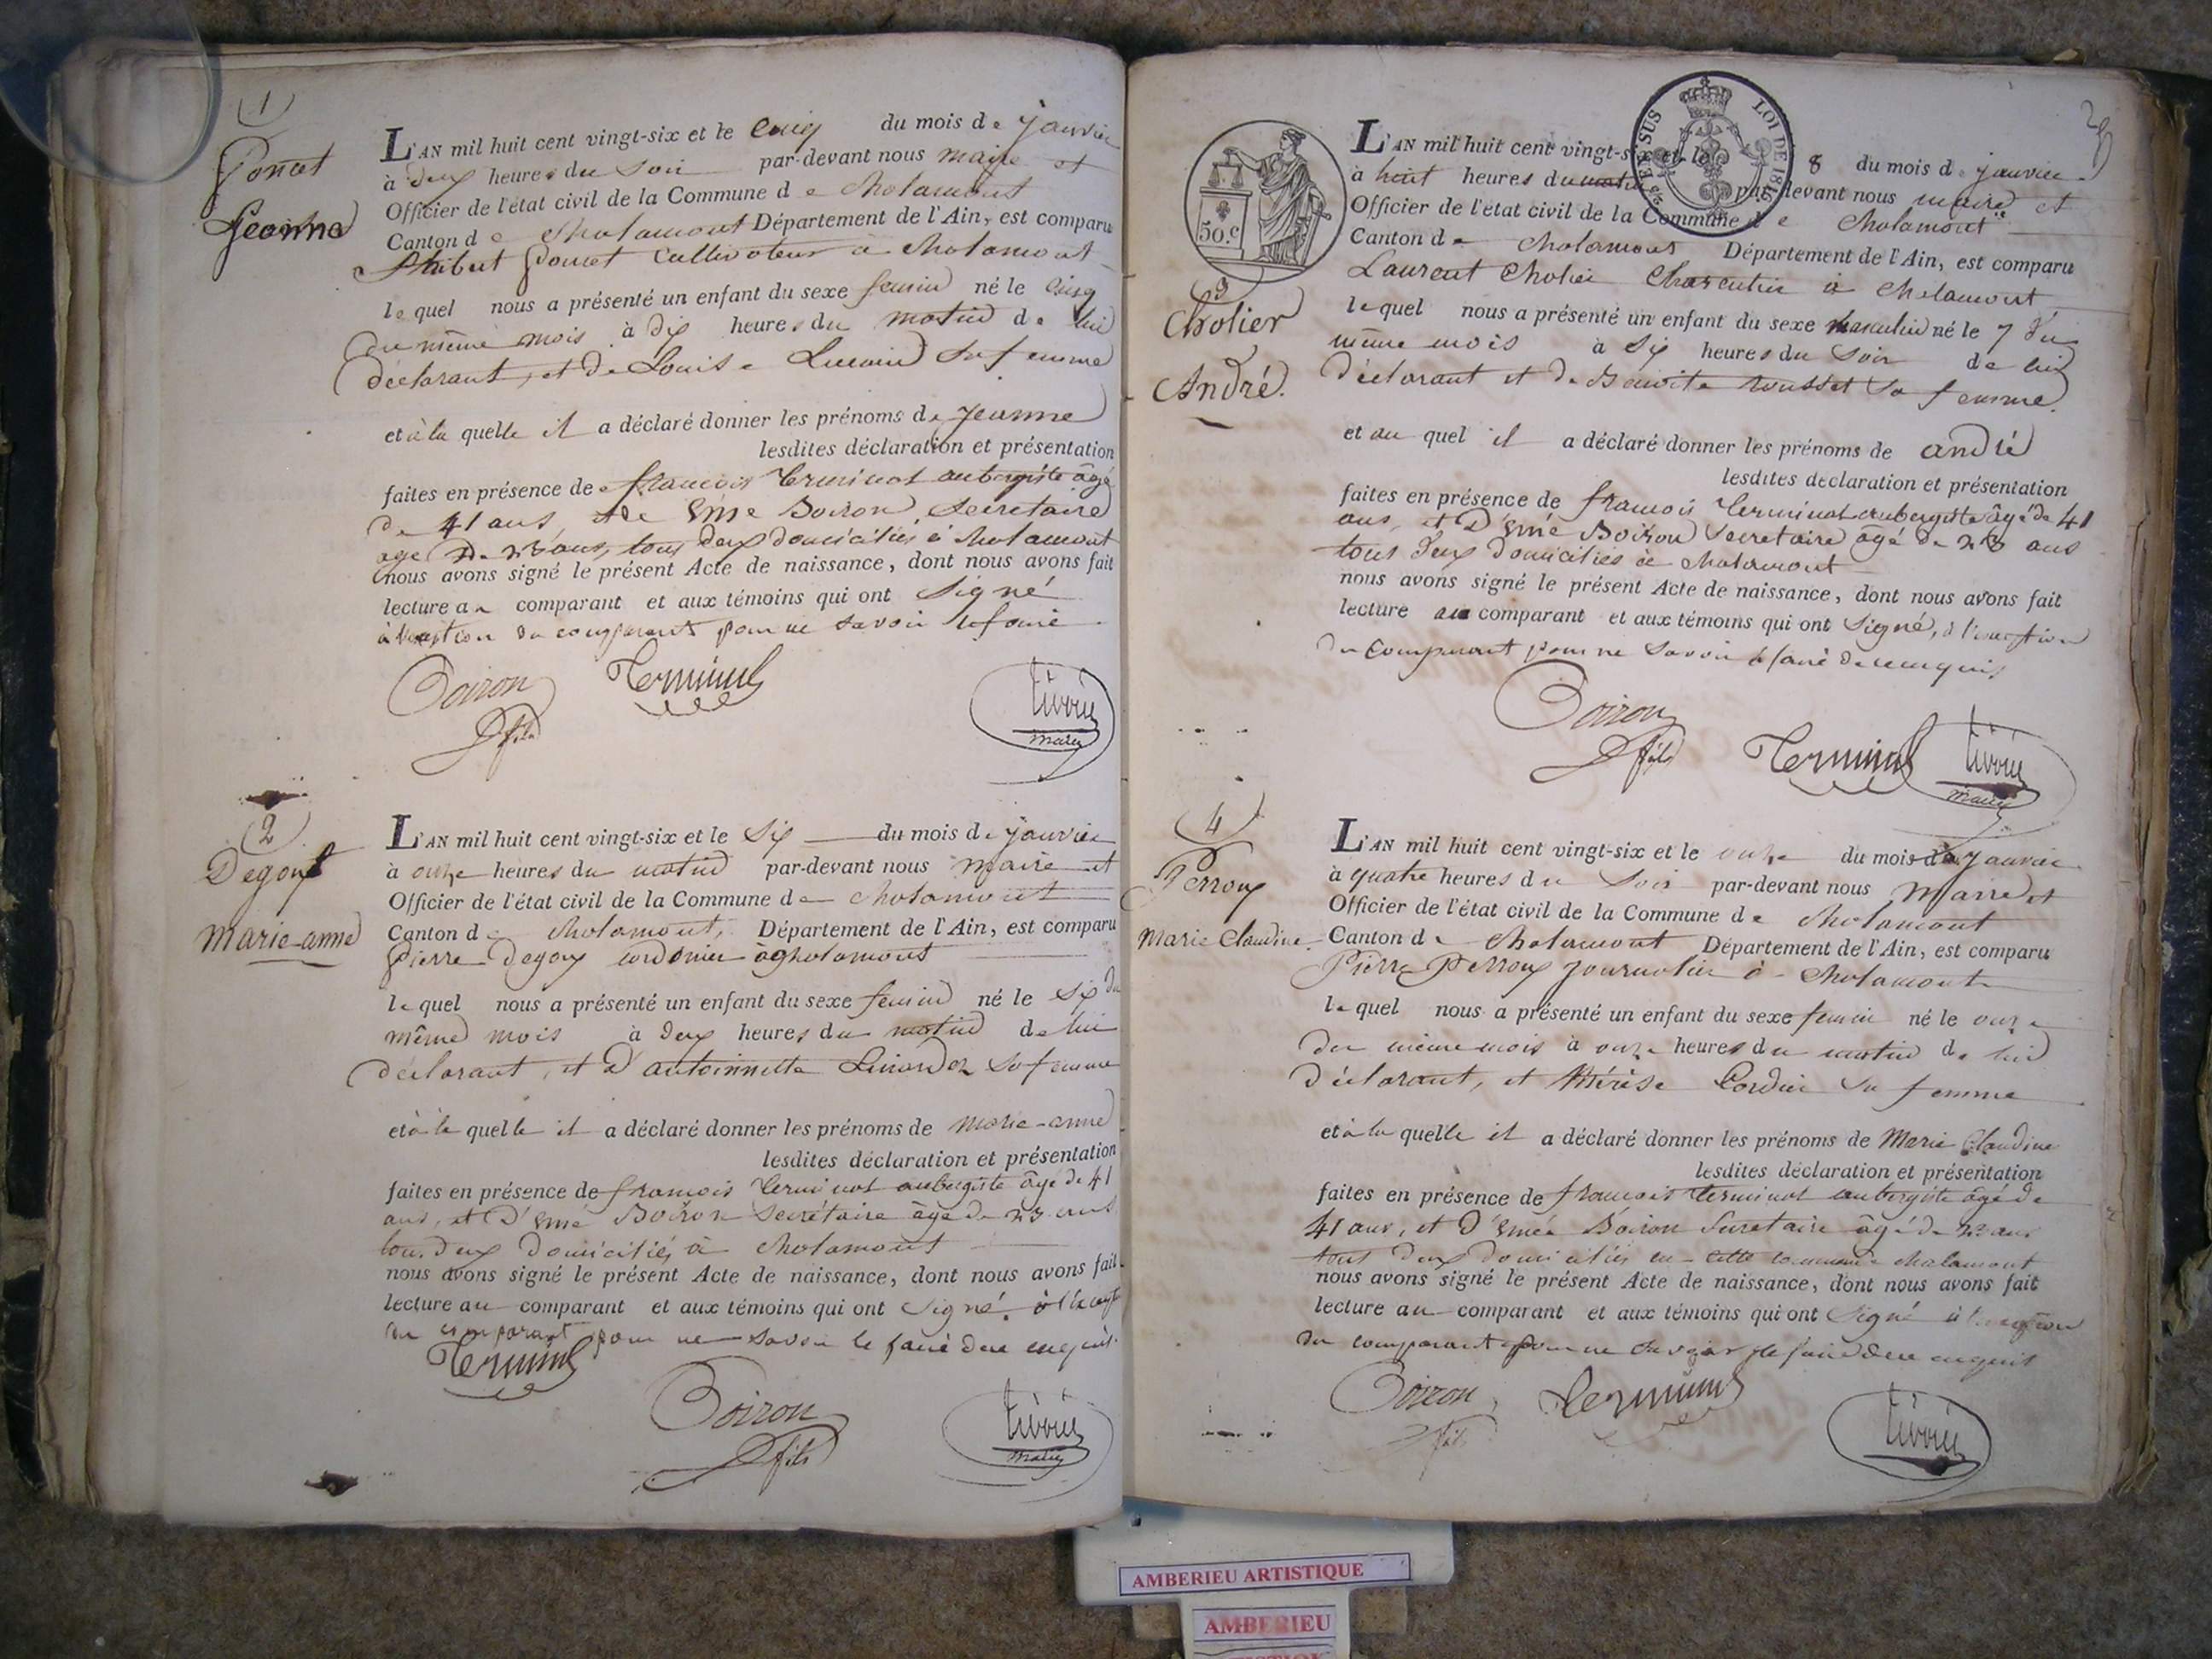 (1)
Poncet
Jeanne
L'AN mil huit cent vingt-six et le cinq du mois de janvier
à deux heures du soir par-devant nous maire et
Officier de l'état civil de la Commune de Chalamont
Canton de Chalamont Département de l'Ain, est comparu
Poncet cultivateur à Chalamont
lequel nous a présenté un enfant du sexe feminin né le cinq
du même mois à dix heures du matin de lui
déclarant, et de Louise sa femme
et à la quelle il a déclaré donner les prénoms de Jeanne
lesdites déclaration et présentation
faites en présence de françois Terminal aubergiste âgé
de 41 ans, et de Boiron, Secretaire
age de 23 ans, tous deux domiciliés à Chalamont
nous avons signé le présent Acte de naissance, dont nous avons fait
lecture au comparant et aux témoins qui ont signé
à l'exeption du comparant pour ne savoir le faire
Boiron
fils
Terminal
maire
(2)
Degoux
Marie-anne
L'AN mil huit cent vingt-six et le six du mois de janvier
à onze heures du matin par-devant nous maire et
Officier de l'état civil de la Commune de Chalamont
Canton de Chalamont, Département de l'Ain, est comparu
Pierre Degoux cordonier à Chalamont
lequel nous a présenté un enfant du sexe feminin né le six du
même mois à deux heures du matin de lui
déclarant, et d'antoinette sa femme
et à la quelle il a déclaré donner les prénoms de Marie-anne
lesdites déclaration et présentation
faites en présence de françois Terminal aubergiste âgé de 41
ans, et d' Boiron Secrétaire âgé de 23 ans
tous deux domiciliés à Chalamont
nous avons signé le présent Acte de naissance, dont nous avons fait
lecture au comparant et aux témoins qui ont signé à l'except
du comparant pour ne savoir le faire de ce enquis.
Terminal
Boiron
fils
maire
50.c
ET SUS
LOI DE 1816
3
Cholier
André.
L'AN mil huit cent vingt-six et le 8 du mois de janvier
à huit heures du matin par-devant nous maire et
Officier de l'état civil de la Commune de Chalamont
Canton de Chalamont Département de l'Ain, est comparu
Laurent Cholier Charcutier à Chalamont
lequel nous a présenté un enfant du sexe masculin né le 7 du
même mois à six heures du soir de lui
déclarant et de Benoite rousset sa femme.
et au quel il a déclaré donner les prénoms de andré
lesdites déclaration et présentation
faites en présence de françois Terminal aubergiste âgé de 41
ans, et d' Boiron Secretaire âgé de 23 ans
tous deux domiciliés à Chalamont
nous avons signé le présent Acte de naissance, dont nous avons fait
lecture au comparant et aux témoins qui ont signé, à l'exeption
du comparant pour ne savoir le faire de ce enquis
Boiron
fils
Terminal
maire
(4)
Perroux
Marie Claudine.
L'AN mil huit cent vingt-six et le onze du mois de janvier
à quatre heures du soir par-devant nous Maire et
Officier de l'état civil de la Commune de Chalamont
Canton de Chalamont Département de l'Ain, est comparu
Pierre Perroux journalier à Chalamont
lequel nous a présenté un enfant du sexe feminin né le onze
du même mois à onze heures du matin de lui
déclarant, et thérèse Cordier sa femme
et à la quelle il a déclaré donner les prénoms de Marie Claudine
lesdites déclaration et présentation
faites en présence de françois Terminal aubergiste âgé de
41 ans, et d' Boiron Secretaire âgé de 23 ans
tous deux domiciliés en cette commune chalamont
nous avons signé le présent Acte de naissance, dont nous avons fait
lecture au comparant et aux témoins qui ont signé à l'exeption
du comparant pour ne savoir le faire de ce enquis
Boiron
fils
Terminal
AMBERIEU ARTISTIQUE
AMBERIEU